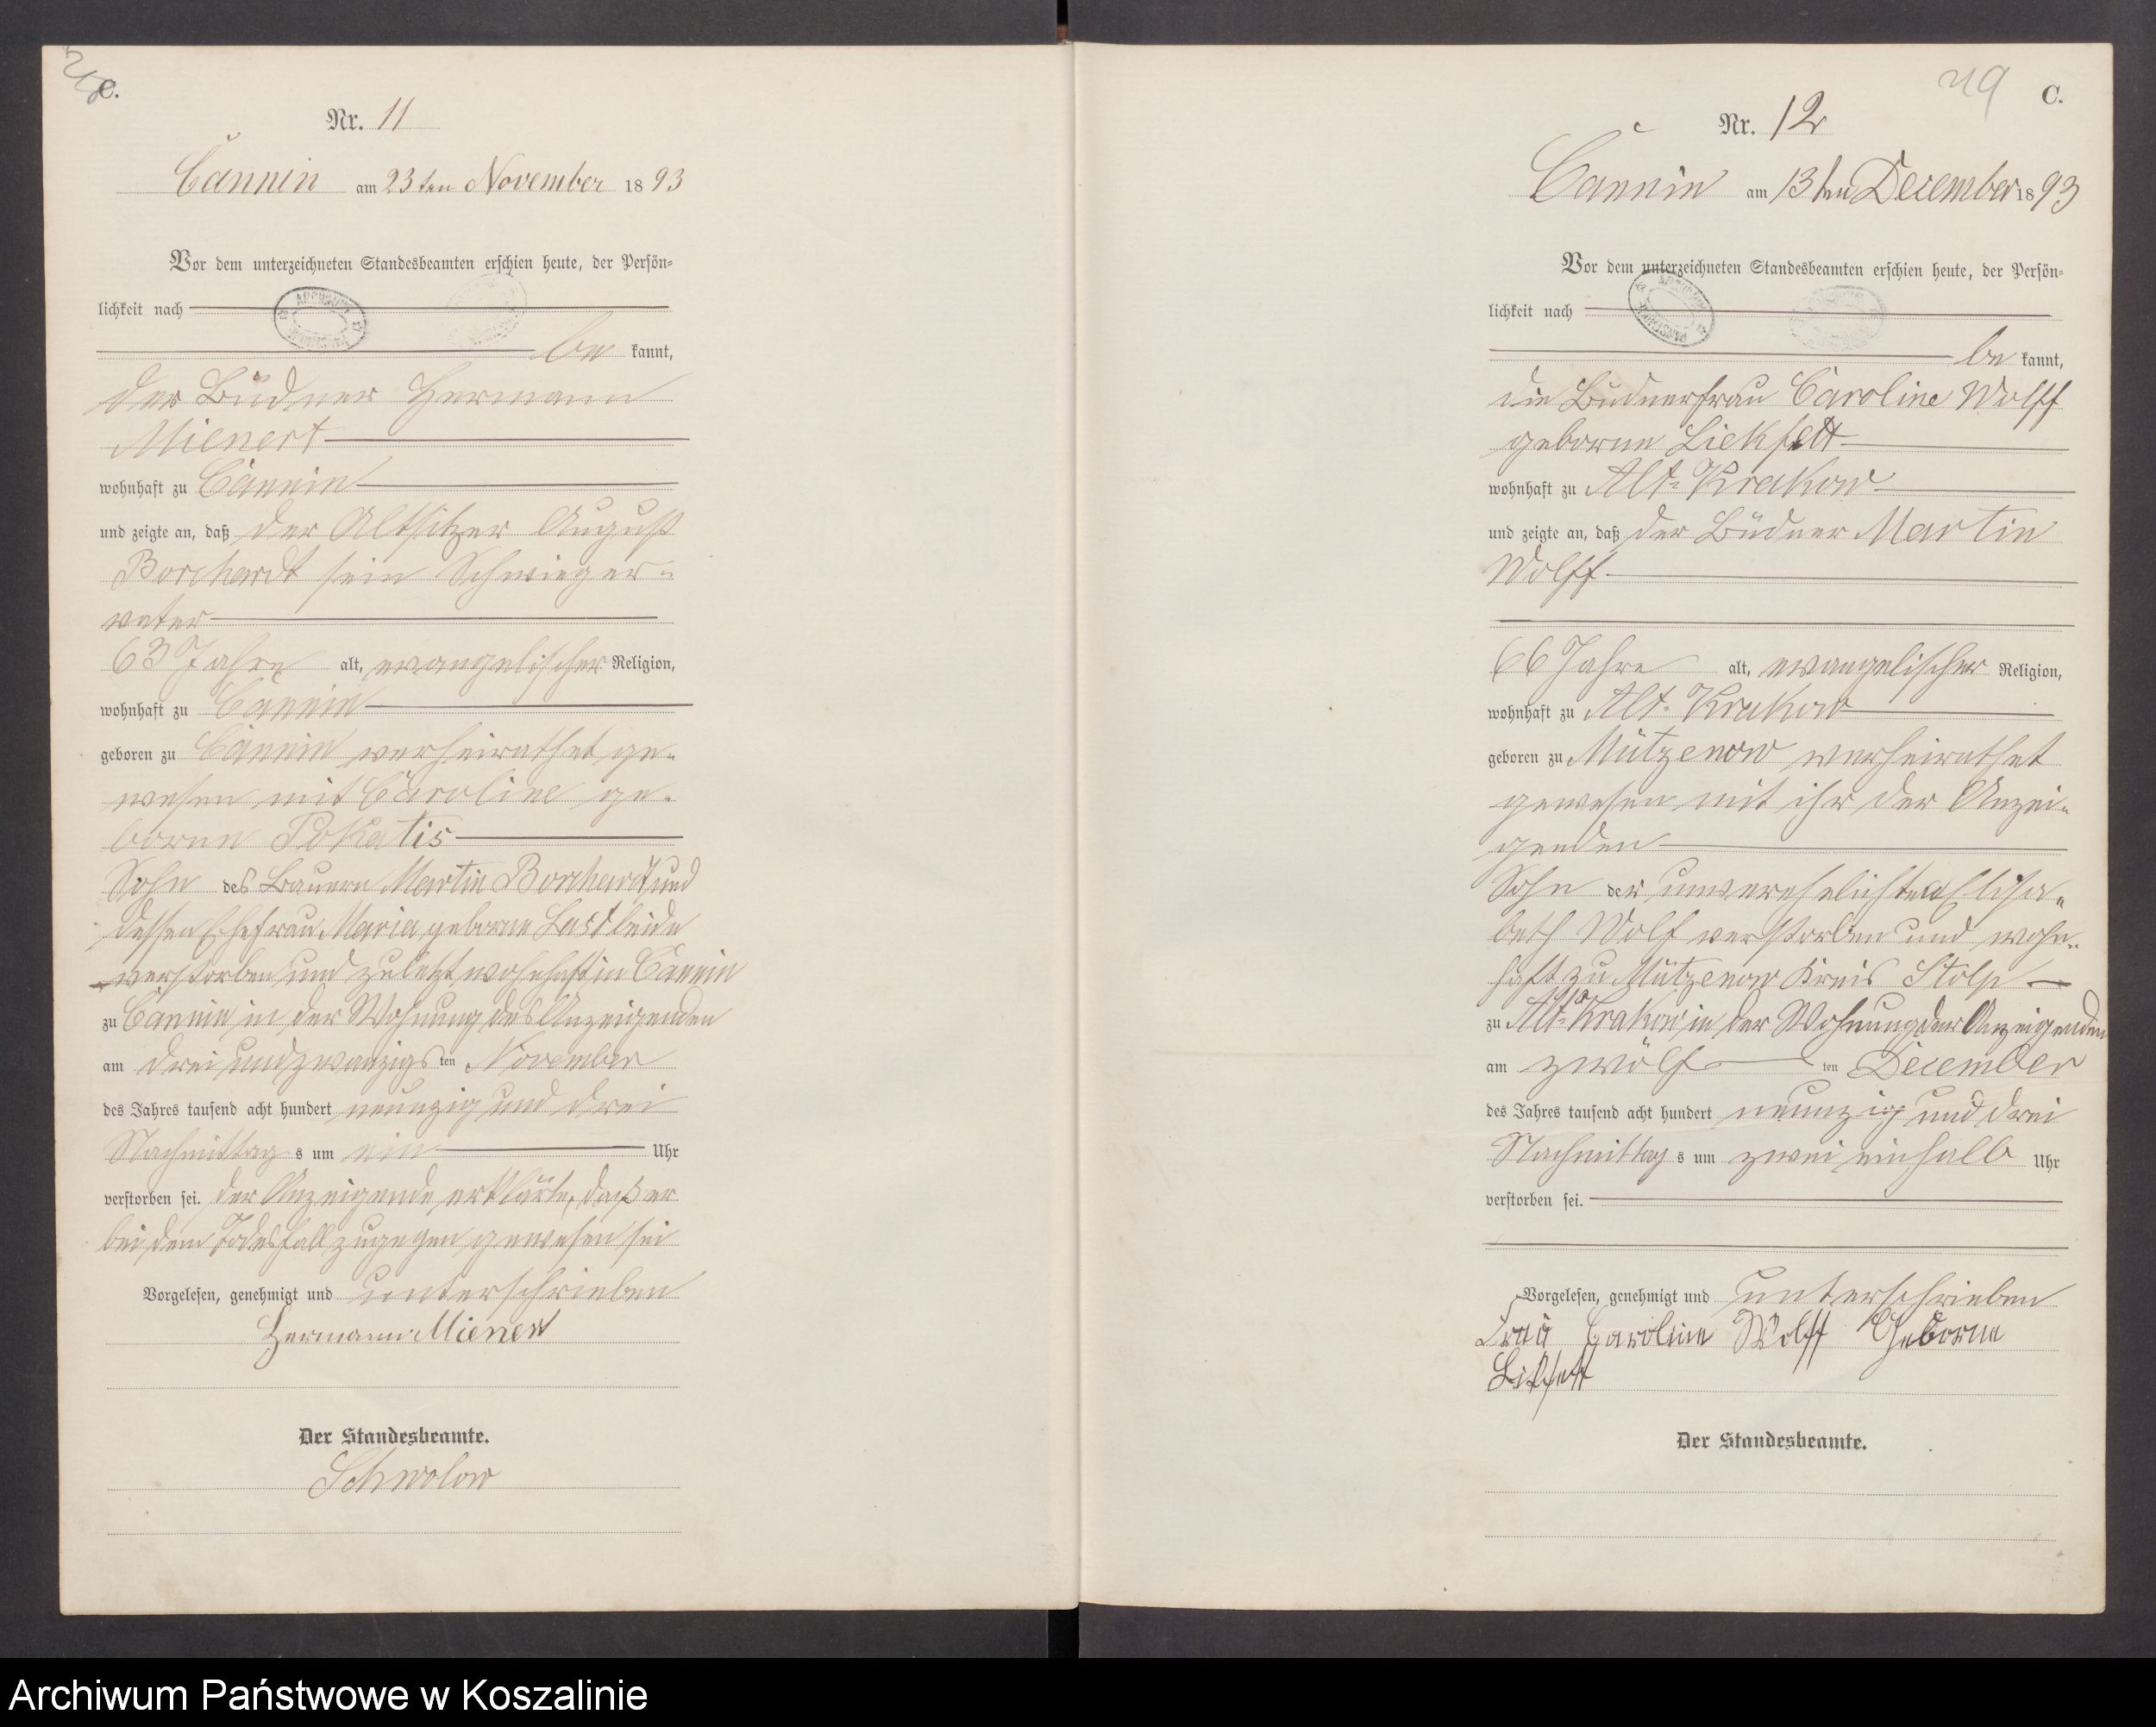 C.
Nr. 11
Cannin am 23ten November 1893
Vor dem unterzeichneten Standesbeamten erschien heute, der Persön-
lichkeit nach
be kannt,
der Büdner Hermann
Mienert
wohnhaft zu Cannin
und zeigte an, daß der Altsitzer August
Borchardt sein Schwieger-
vater
63 Jahre alt, evangelischer Religion,
wohnhaft zu Cannin
geboren zu Cannin verheirathet ge-
wesen mit Caroline ge-
borne Pokatis
Sohn des Bauern Martin Borchardt und
dessen Ehefrau Maria geborne Last beide
verstorben und zuletzt wohnhaft in Cannin
zu Cannin in der Wohnung des Anzeigenden
am drei und zwanzigs ten November
des Jahres tausend acht hundert neunzig und drei
Nachmittag s um ein Uhr
verstorben sei. der Anzeigende erklärte, daß er
bei dem Todesfall zugegen gewesen sei
Vorgelesen, genehmigt und unterschrieben
Hermann Mienert
Der Standesbeamte.
Schwolow
49 C.
Nr. 12
Cannin am 13ten December 1893
Vor dem unterzeichneten Standesbeamten erschien heute, der Persön-
lichkeit nach
be kannt,
die Büdnerfrau Caroline Wolff
geborne Liekfett
wohnhaft zu Alt-Krakow
und zeigte an, daß der Büdner Martin
Wolff
66 Jahre alt, evangelischer Religion,
wohnhaft zu Alt-Krakow
geboren zu Mützenow verheirathet
gewesen mit ihr der Anzei-
genden
Sohn der unverehelichten Elisa-
beth Wolf verstorben und wohn-
haft zu Mützenow Kreis Stolp
zu Alt-Krakow in der Wohnung der Anzeigenden
am zwölf ten December
des Jahres tausend acht hundert neunzig und drei
Nachmittag s um zwei einhalb Uhr
verstorben sei.
Vorgelesen, genehmigt und unterschrieben
Frau Caroline Wolff Geborne
Likfett
Der Standesbeamte.
Archiwum Państwowe w Koszalinie